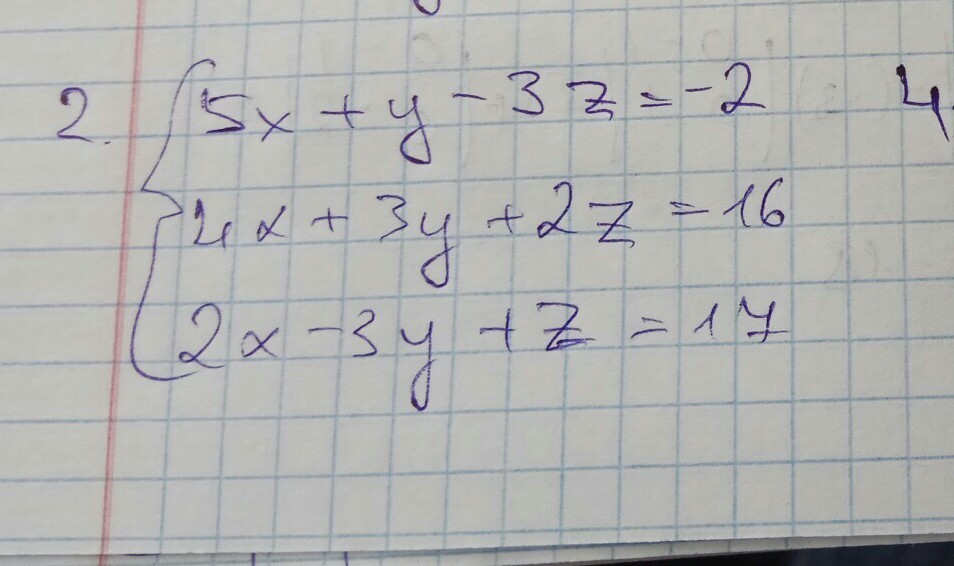 2. { 5x + y - 3z = -2
4x + 3y + 2z = 16
2x - 3y + z = 17
4.